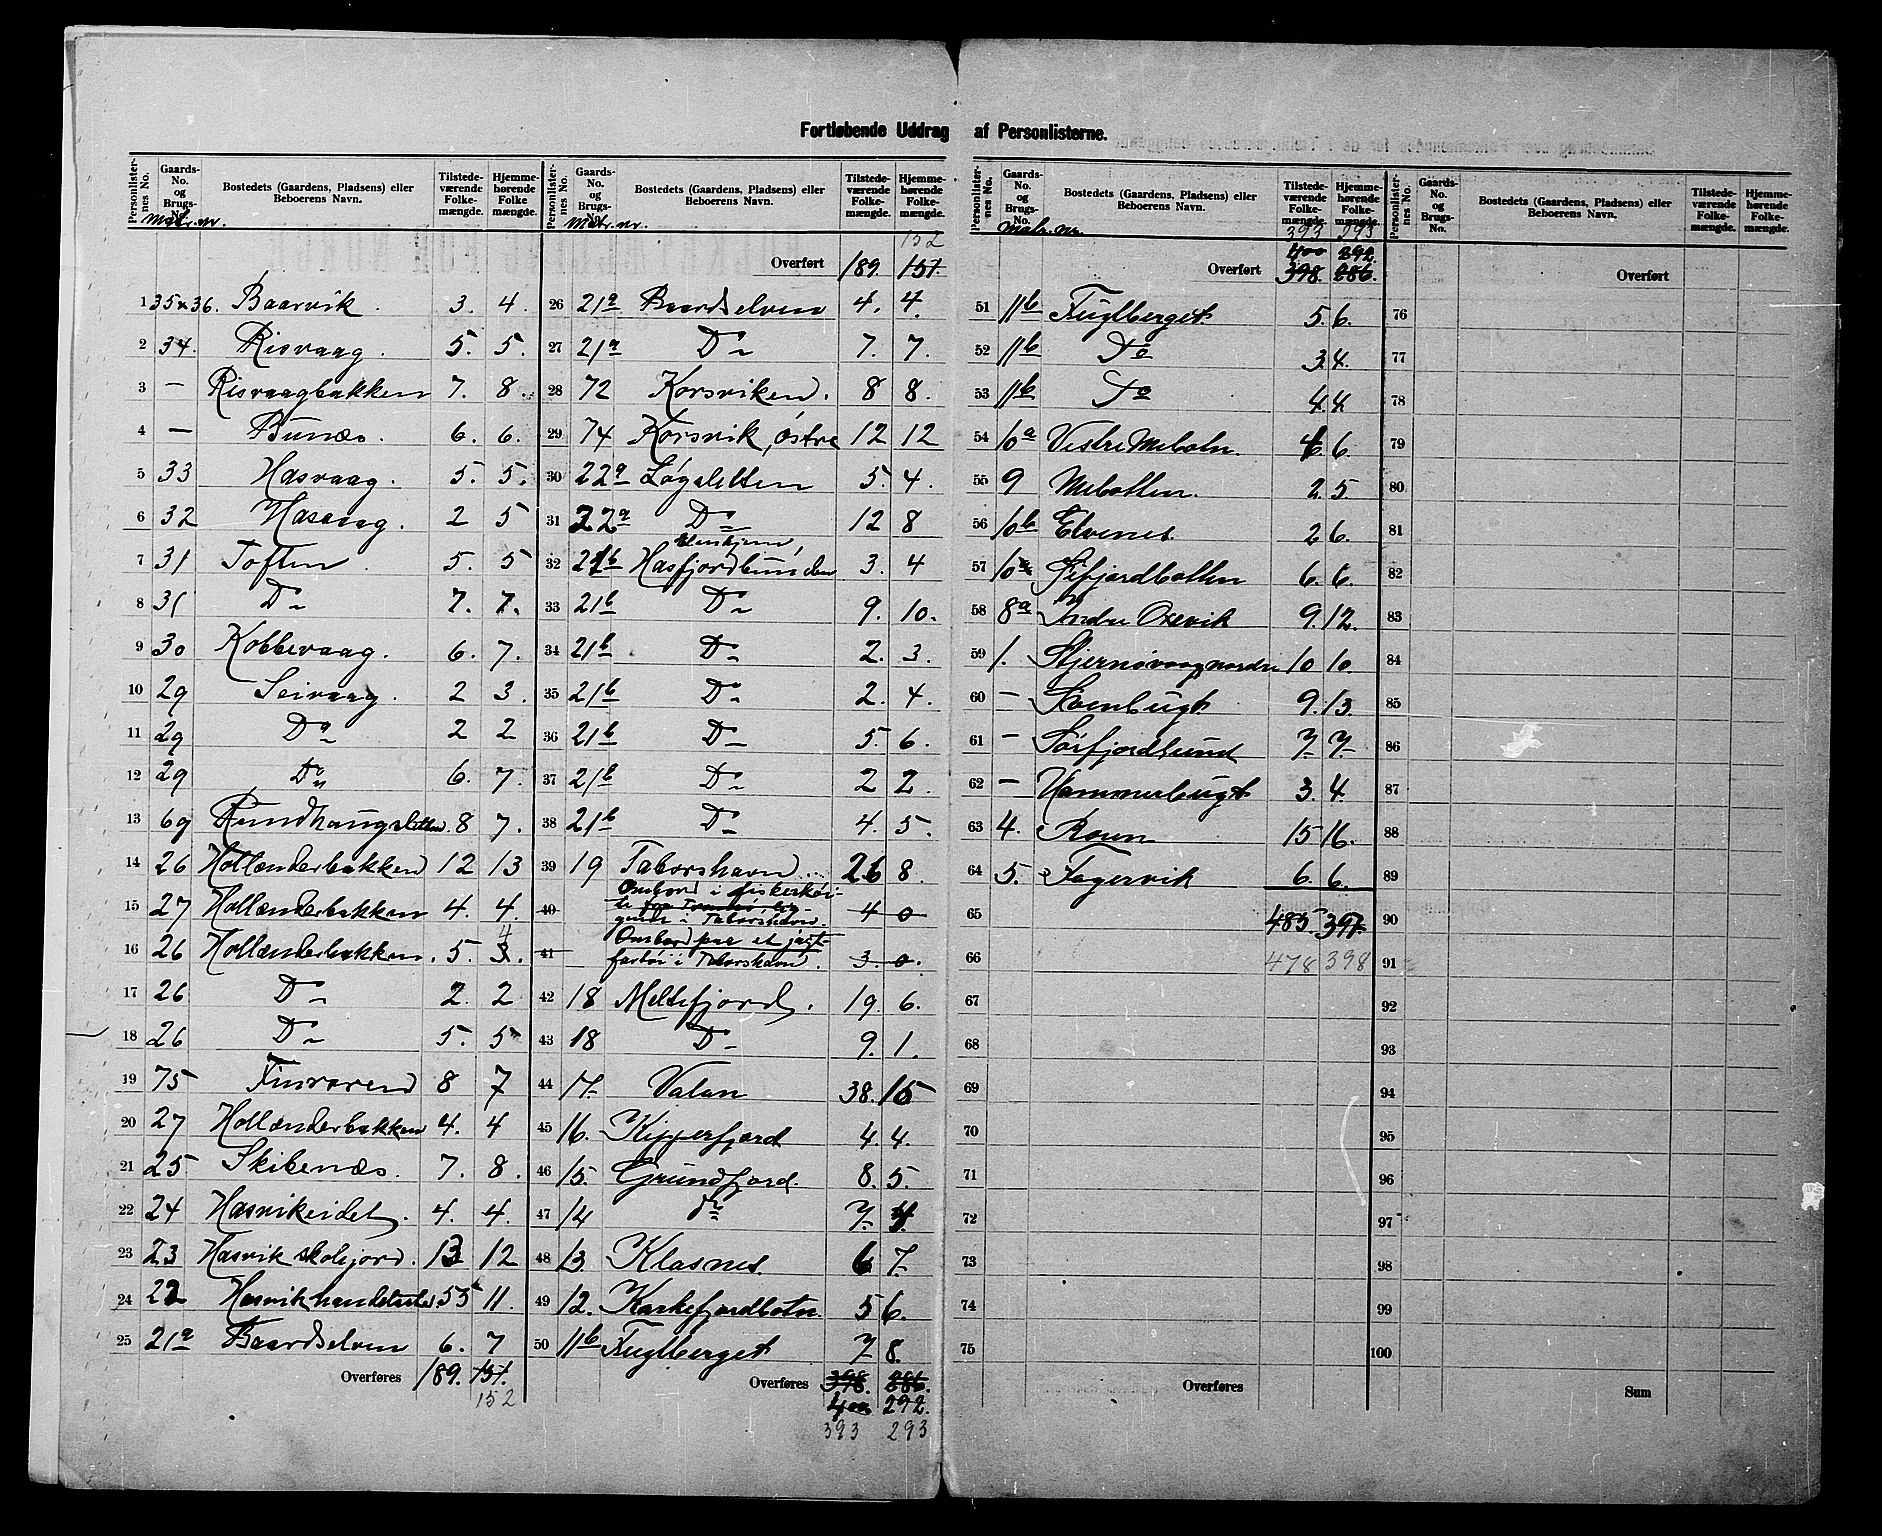 Fortløbende Uddrag af Personlisterne.
Personlister-nes No. Gaards-No. og Brugs-No. Bostedets (Gaardens, Pladsens) eller Beboerens Navn. Tilstede-værende Folke-mængde. Hjemme-hørende Folke-mængde.
Matr. nr.
1 35 & 36. Baarvik. 3. 4.
2 34. Risvaag. 5. 5.
3 — Risvaagbakken 7. 8.
4 — Bunæs. 6. 6.
5 33 Hasvaag. 5. 5.
6 32 Hasvaag. 2 5
7 31 Toften 5. 5
8 31 Do 7. 7.
9 30 Kobbevaag. 6. 7.
10 29 Seivaag. 2 3.
11 29 Do 2 2
12 29 Do 6. 7.
13 69 Rundhaugsletten. 8 7.
14 26 Hollænderbakken 12 13
15 27 Hollænderbakken 4. 4.
16 26 Hollænderbakken. 5. 3. 4
17 26 Do 2. 2
18 26 Do 5. 5
19 75 Finroren 8 7
20 27 Hollænderbakken 4. 4
21 25 Skibenæs. 7. 8.
22 24 Hasvikeidet. 4. 4.
23 23 Hasvik skolejord. 13 12
24 22 Hasvik handelssted 55 11.
25 21a Baardselven 6. 7
Overføres 189. 151.
152
Personlister-nes No. Gaards-No. og Brugs-No. Bostedets (Gaardens, Pladsens) eller Beboerens Navn. Tilstede-værende Folke-mængde. Hjemme-hørende Folke-mængde.
Matr. nr.
152
Overført 189. 151.
26 21a Baardselven 4. 4.
27 21a Do 7. 7.
28 72 Korsviken. 8 8.
29 74 Korsvik, østre 12 12
30 22a Løgsletten 5. 4.
31 22a Do 12 8
32 21b Hasfjordbunden 3. 4
33 21b Do 9. 10.
34 21b Do 2. 3.
35 21b Do 2. 4.
36 21b Do 5. 6.
37 21b Do 2 2.
38 21b Do 4. 5.
39 19 Taborshavn 26 8.
40 Ombord i fiskerskøi-
te for Tromsø lig-
gende i Taborshavn 4 0
41 Ombord paa et jagt-
fartøi i Taborshavn. 3. 0.
42 18 Meltefjord. 19 6.
43 18 Do 9. 1.
44 17. Valan 38. 15
45 16. Kipperfjord 4 4.
46 15. Grundfjord. 8. 5.
47 14 do 7. 4.
48 13. Klasnes. 6 7.
49 12. Karkefjordbotn 5 6.
50 11b Fuglberget 7 8.
Overføres 398. 286.
400 292.
393 293
Personlister-nes No. Gaards-No. og Brugs-No. Bostedets (Gaardens, Pladsens) eller Beboerens Navn. Tilstede-værende Folke-mængde. Hjemme-hørende Folke-mængde.
Matr. nr.
393 293
400 292.
Overført 398. 286.
51 11b Fuglberget. 5. 6.
52 11b Do 3. 4.
53 11b Do 4. 4.
54 10a Vestre Mebotn. 6. 6.
55 9 Mebotten. 2. 5.
56 10b Elvenes. 2 6.
57 10 Sifjordbotten 6. 6.
58 8a Indre Oxevik 9. 12.
59 1. Stjernøvaag nordre 10 10
60 — Kvenbugt 9. 13.
61 — Sørfjordsund 7. 7.
62 — Hammerbugt 3. 4.
63 4. Roren 15 16.
64 5. Fagervik 6. 6.
65 485. 397.
66 478 398
67
68
69
70
71
72
73
74
75
Overføres
Personlister-nes No. Gaards-No. og Brugs-No. Bostedets (Gaardens, Pladsens) eller Beboerens Navn. Tilstede-værende Folke-mængde. Hjemme-hørende Folke-mængde.
Overført
76
77
78
79
80
81
82
83
84
85
86
87
88
89
90
91
92
93
94
95
96
97
98
99
100
Sum